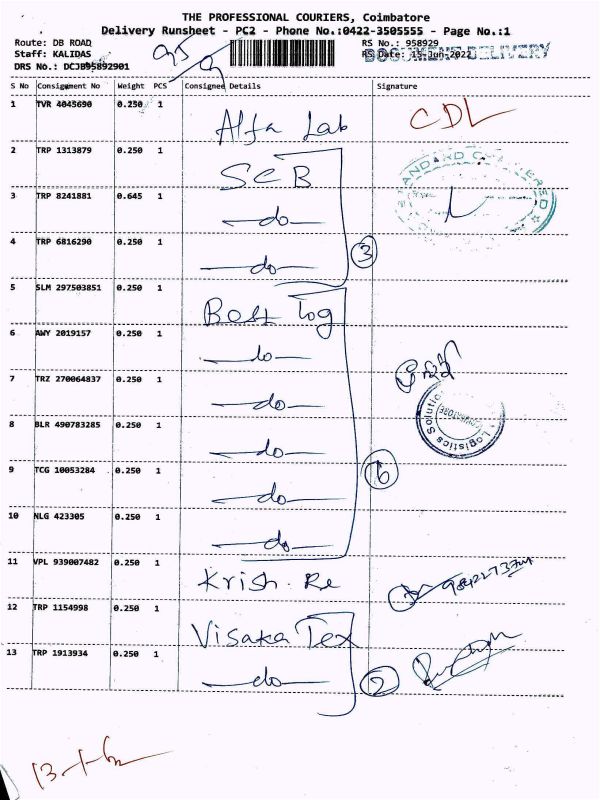 THE PROFESSIONAL COURIERS, Coimbatore
Delivery Runsheet - PC2 - Phone No.:0422-3505555 - Page No.:1
Route: DB ROAD RS No.: 958929
Staff: KALIDAS RS Date: 15-Jun-2022 DOCUMENT DELIVERY
DRS No.: DCJB95892901
S No Consignment No Weight PCS Consignee Details Signature
1 TVR 4045690 0.250 1 Alfa Lab CDL
2 TRP 1313879 0.250 1 SCB
STANDARD CHARTERED
3 TRP 8241881 0.645 1 -do-
4 TRP 6816290 0.250 1 -do- 3
5 SLM 297503851 0.250 1 Best Log
6 AWY 2019157 0.250 1 -do-
7 TRZ 270064837 0.250 1 -do-
8 BLR 490783285 0.250 1 -do-
Logistics Solution
COIMBATORE
9 TCG 10053284 0.250 1 -do- 6
10 NLG 423305 0.250 1 -do-
11 VPL 939007482 0.250 1 Krish. Re
12 TRP 1154998 0.250 1 Visaka Tex
13 TRP 1913934 0.250 1 -do- 2